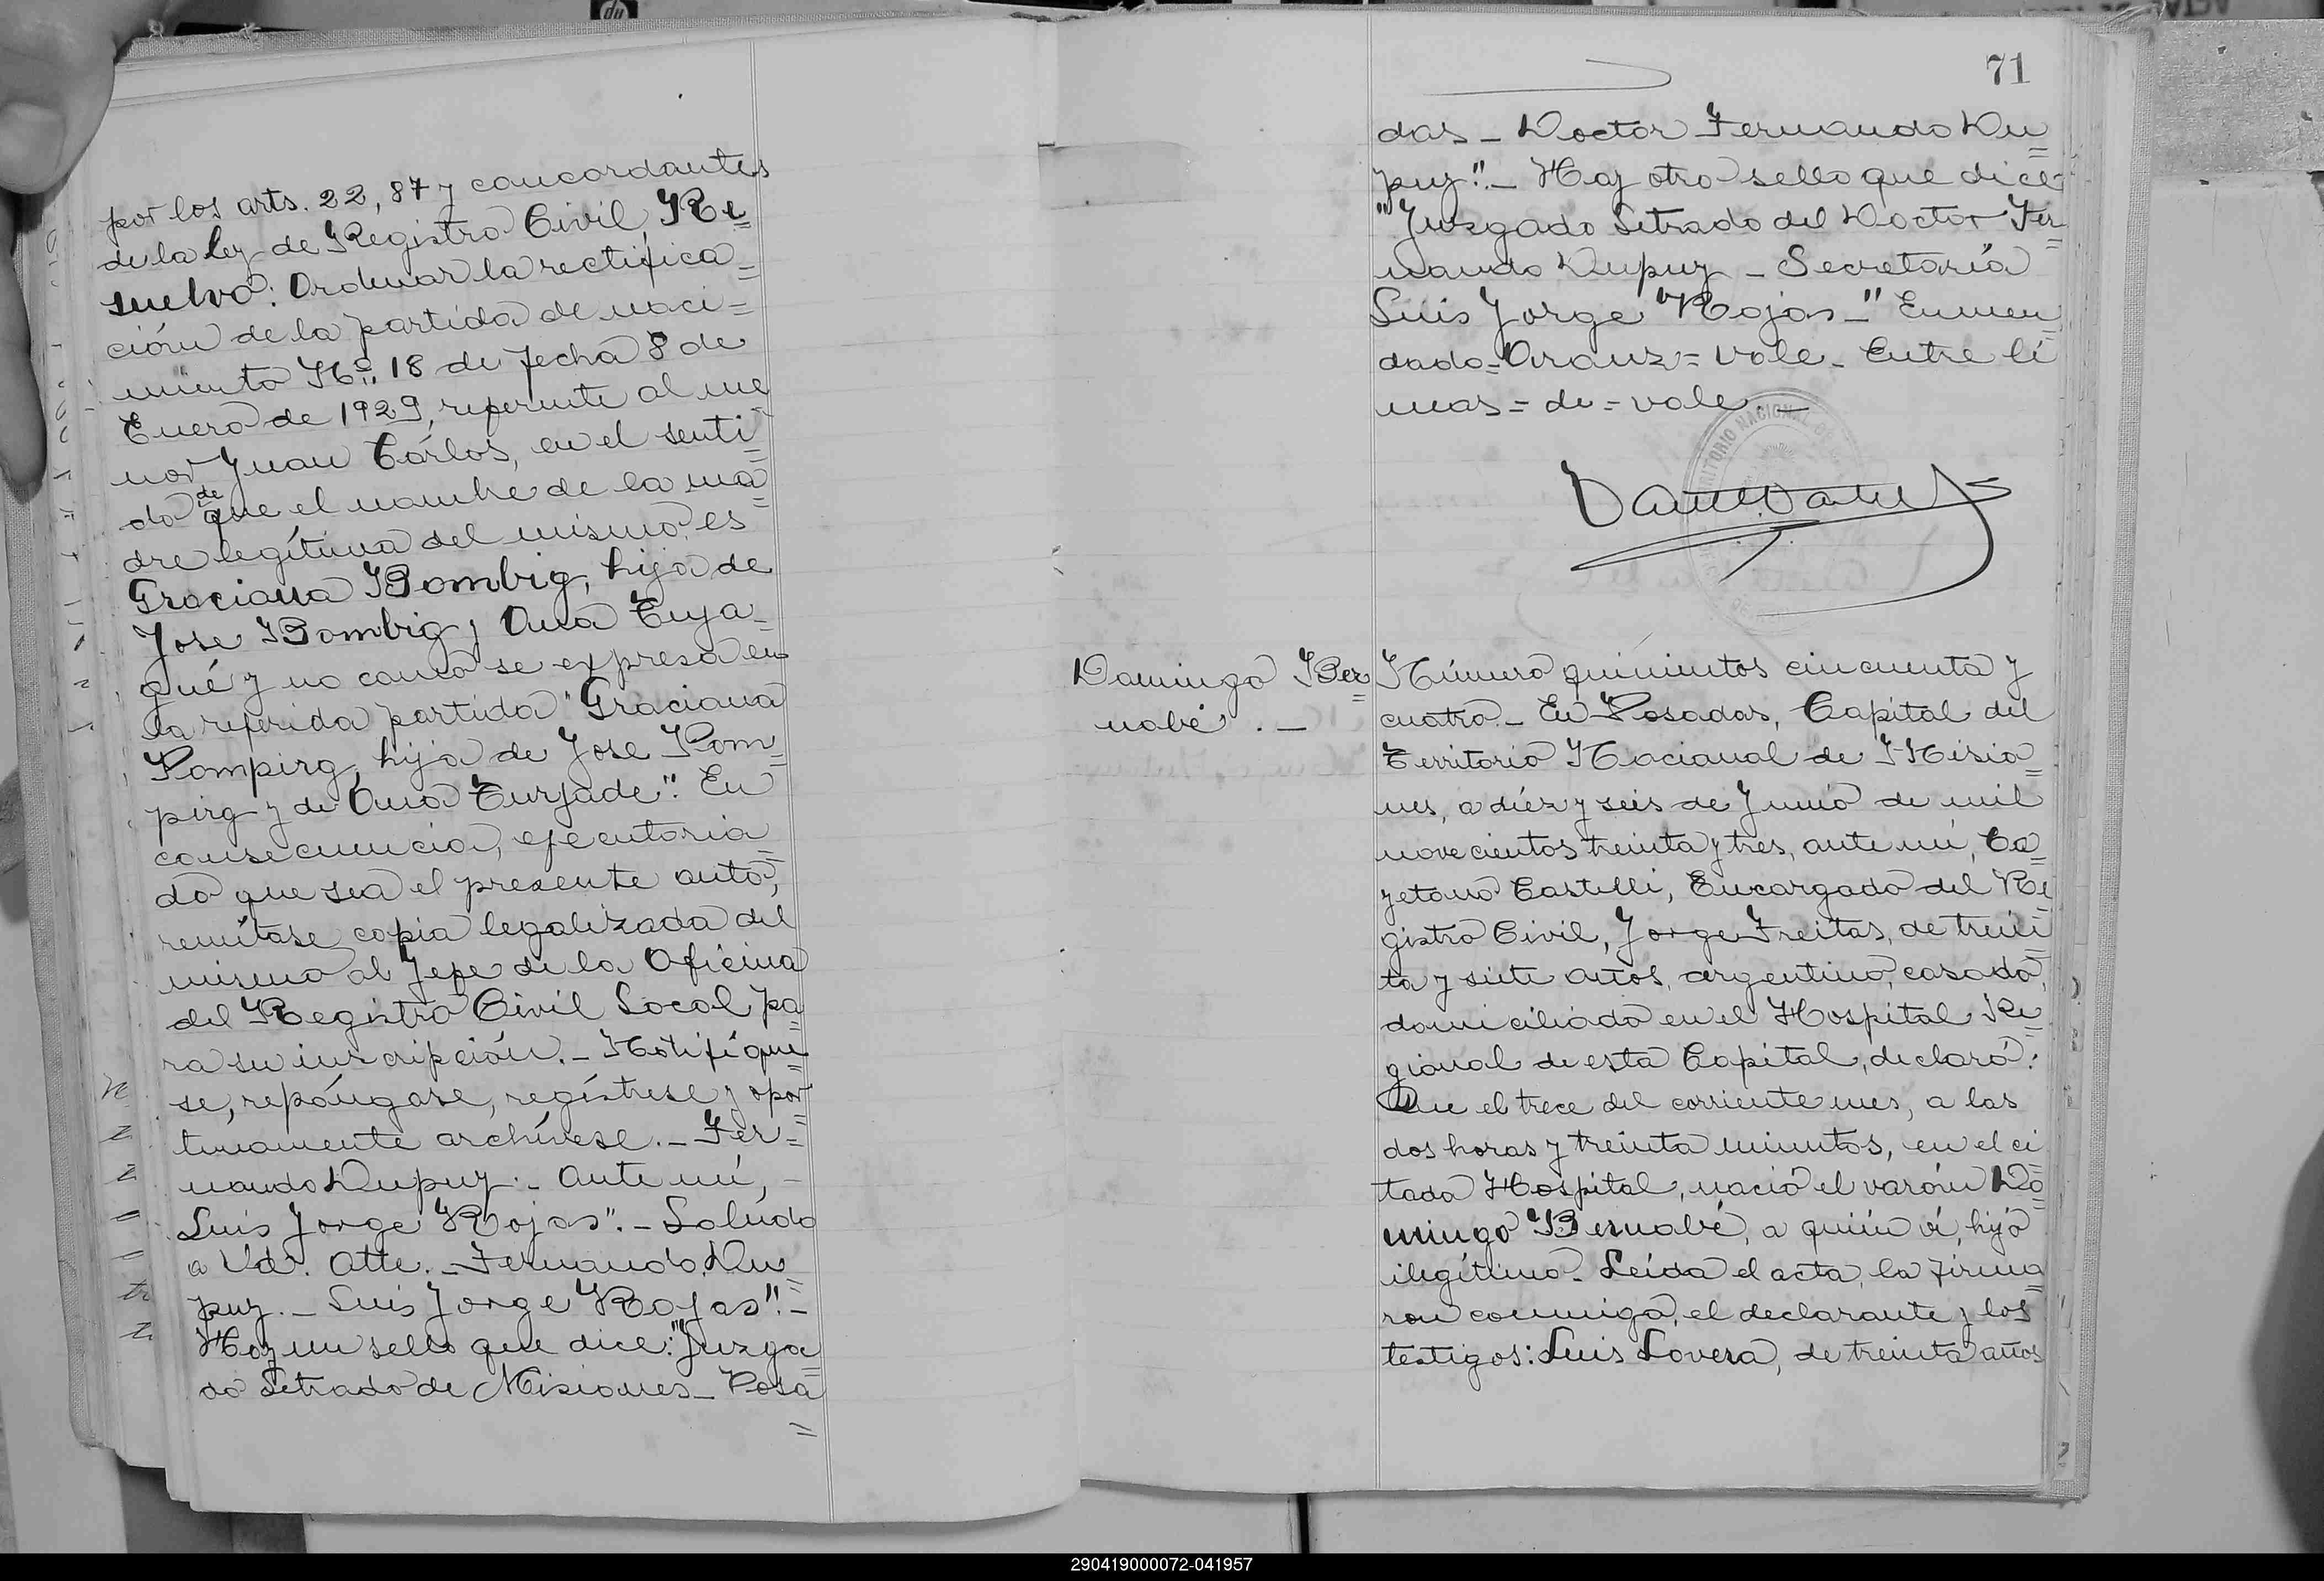 por los arts. 22, 87 y concordantes
de la ley de Registro Civil, Re=
suelvo: Ordenar la rectifica=
ción de la partida de naci=
miento Nº 18 de fecha 8 de
Enero de 1929, referente al me=
nor Juan Cárlos, en el senti=
do de que el nombre de la ma=
dre legítima del mismo, es
Graciana Bombig, hija de
Jose Bombig y Ana Cuya=
qué y no como se expresa en
la referida partida "Graciana
Pompirg, hija de Jose Pom=
pirg y de Ana Curjade". En
consecuencia, ejecutoria=
do que sea el presente auto,
remítase copia legalizada del
mismo al Jefe de la Oficina
del Registro Civil Local pa=
ra su inscripción. - Notifíque=
se, repóngase, regístrese y opor=
tunamente archívese. - Fer=
nando Dupuy. - Ante mí, -
Luis Jorge Rojas". - Saludo
a Vd. Atte. - Fernando Du=
puy. - Luis Jorge Rojas". -
Hay un sello que dice: "Juzga=
do Letrado de Misiones - Posa=
71
das - Doctor Fernando Du=
puy". - Hay otro sello que dice:
"Juzgado Letrado del Doctor Fer=
nando Dupuy - Secretaría
Luis Jorge Rojas -" Enmen=
dado = Aranz = vale - Entre lí=
neas = de = vale. -
Domingo Ber=
nabé. -
Número quinientos cincuenta y
cuatro. - En Posadas, Capital del
Territorio Nacional de Misio=
nes, a diéz y seis de Junio de mil
novecientos treinta y tres, ante mí, Ca=
yetano Castelli, Encargado del Re=
gistro Civil, Jorge Freitas, de trein=
ta y siete años, argentino, casado,
domiciliado en el Hospital Re=
gional de esta Capital, declaró:
Que el trece del corriente mes, a las
dos horas y treinta minutos, en el ci=
tado Hospital, nació el varón Do=
mingo Bernabé, a quién ví, hijo
ilegítimo. Leída el acta, la firma=
ron conmigo, el declarante y los
testigos: Luis Lovera, de treinta años
290419000072-041957